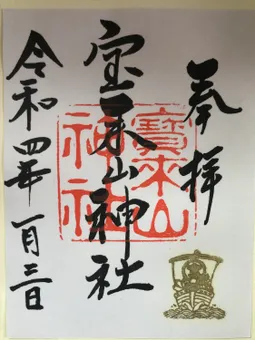 奉拝
宝来山神社
寳来山
神社
令和四年一月三日